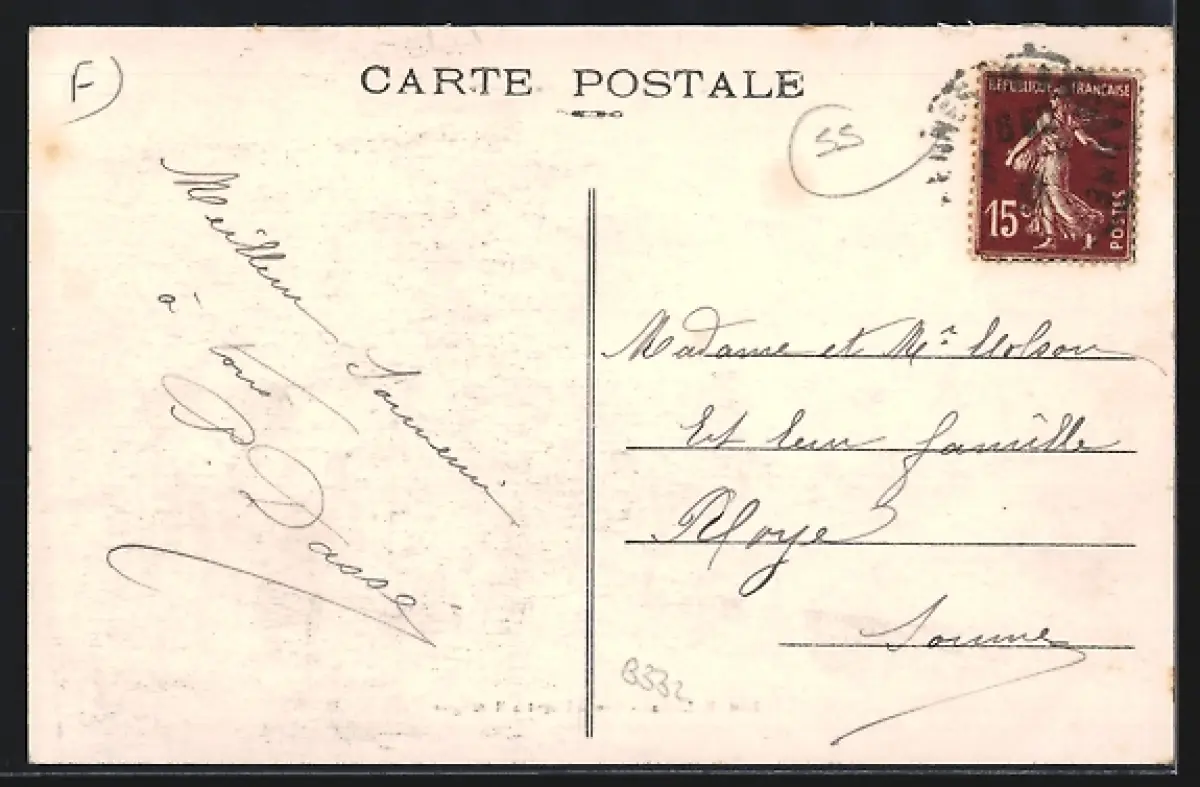 CARTE POSTALE
F)
55
REPUBLIQUE FRANÇAISE
15c
POSTES
Meilleur Souvenir
à tous
P Dassé
Madame et Mr
Et leur famille
Roye
Somme
B332